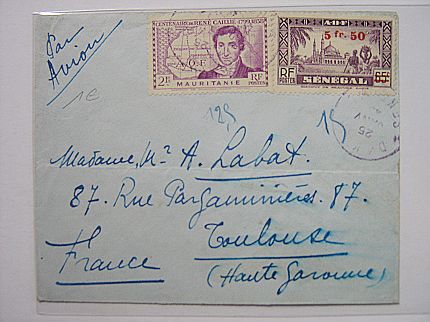 Par
Avion
CENTENAIRE DE RENÉ CAILLIÉ
A.O.F
2F RF
POSTES
MAURITANIE
AOF
5 fr. 50
RF
POSTES
SÉNÉGAL
1e
125
15
25
Madame, Mr A. Labat.
87. Rue Pargaminières. 87.
Toulouse
France (Haute Garonne)